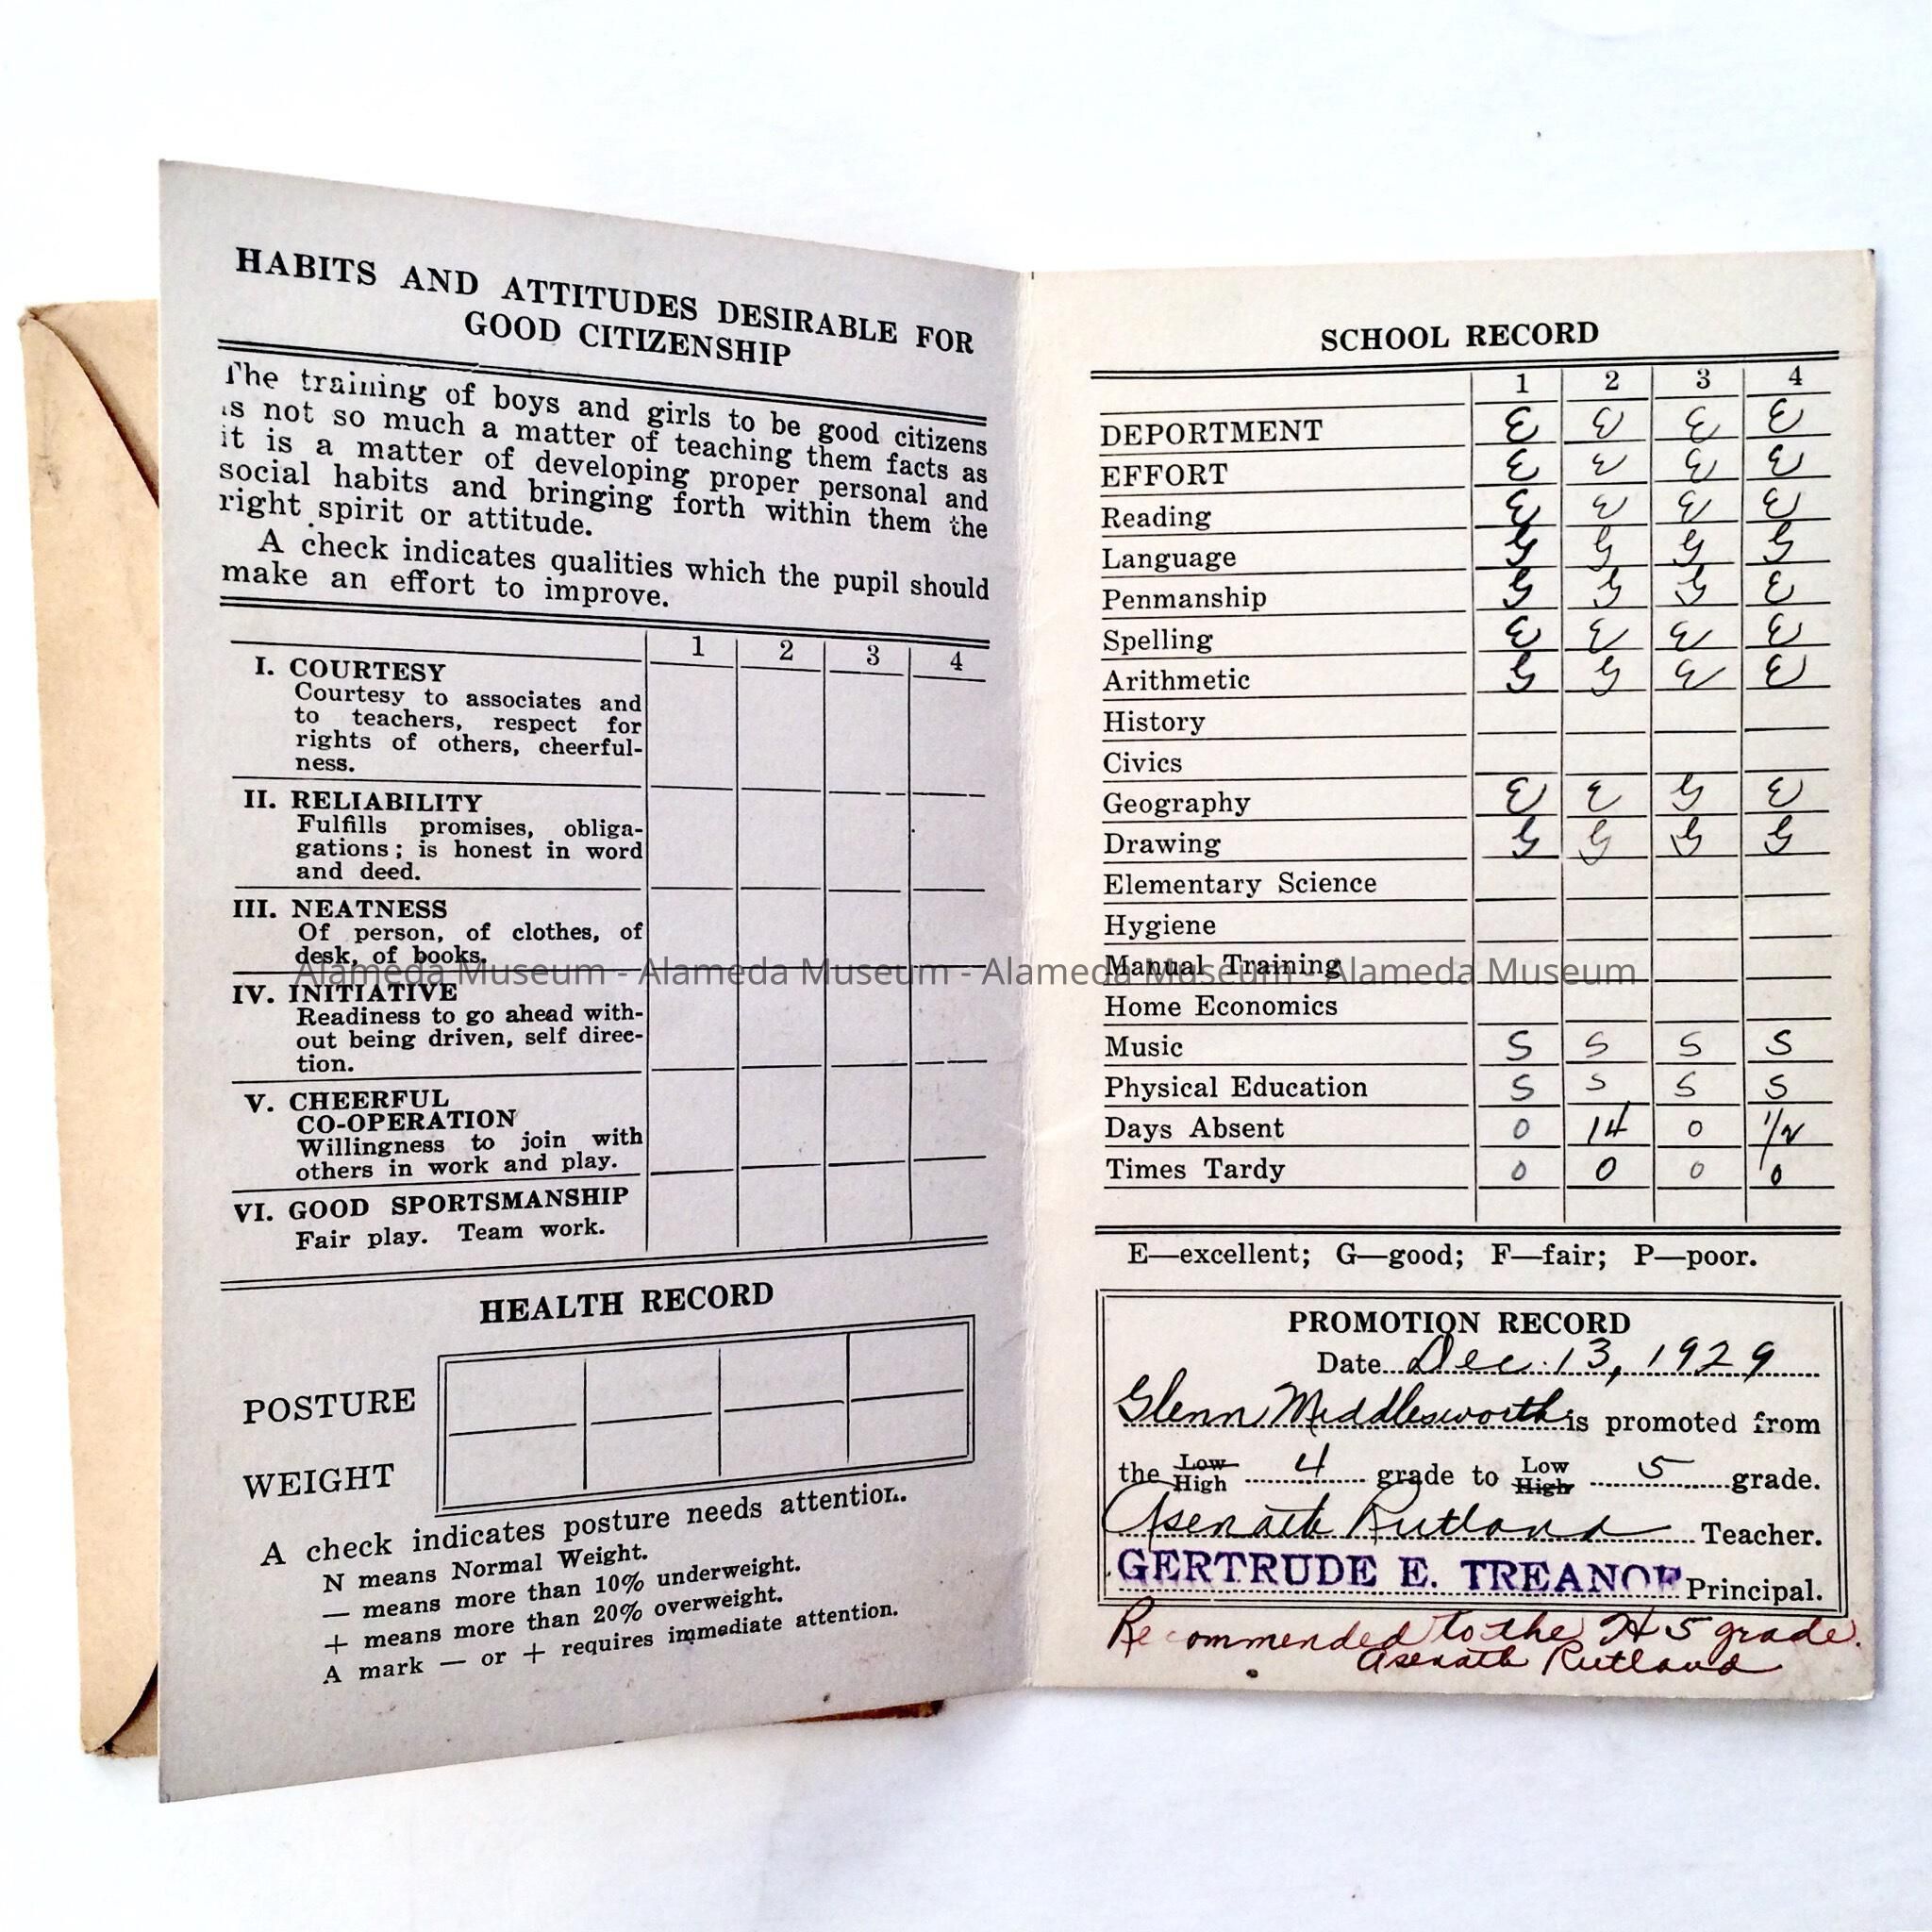 HABITS AND ATTITUDES DESIRABLE FOR
GOOD CITIZENSHIP
The training of boys and girls to be good citizens
is not so much a matter of teaching them facts as
it is a matter of developing proper personal and
social habits and bringing forth within them the
right spirit or attitude.
A check indicates qualities which the pupil should
make an effort to improve.
1 2 3 4
I. COURTESY
Courtesy to associates and
to teachers, respect for
rights of others, cheerful-
ness.
II. RELIABILITY
Fulfills promises, obliga-
gations; is honest in word
and deed.
III. NEATNESS
Of person, of clothes, of
desk, of books.
IV. INITIATIVE
Readiness to go ahead with-
out being driven, self direc-
tion.
V. CHEERFUL
CO-OPERATION
Willingness to join with
others in work and play.
VI. GOOD SPORTSMANSHIP
Fair play. Team work.
HEALTH RECORD
POSTURE
WEIGHT
A check indicates posture needs attention.
N means Normal Weight.
— means more than 10% underweight.
+ means more than 20% overweight.
A mark — or + requires immediate attention.
SCHOOL RECORD
1 2 3 4
DEPORTMENT E E E E
EFFORT E E E E
Reading E E E E
Language G G G G
Penmanship G G G E
Spelling E E E E
Arithmetic G G E E
History
Civics
Geography E E G E
Drawing G G G G
Elementary Science
Hygiene
Manual Training
Home Economics
Music S S S S
Physical Education S S S S
Days Absent 0 14 0 1/2
Times Tardy 0 0 0 0
E—excellent; G—good; F—fair; P—poor.
PROMOTION RECORD
Date Dec. 13, 1929
Glenn Middlesworth is promoted from
the Low High 4 grade to Low High 5 grade.
Asenath Rutland Teacher.
GERTRUDE E. TREANOR Principal.
Recommended to the H 5 grade.
Asenath Rutland
Alameda Museum - Alameda Museum - Alameda Museum - Alameda Museum